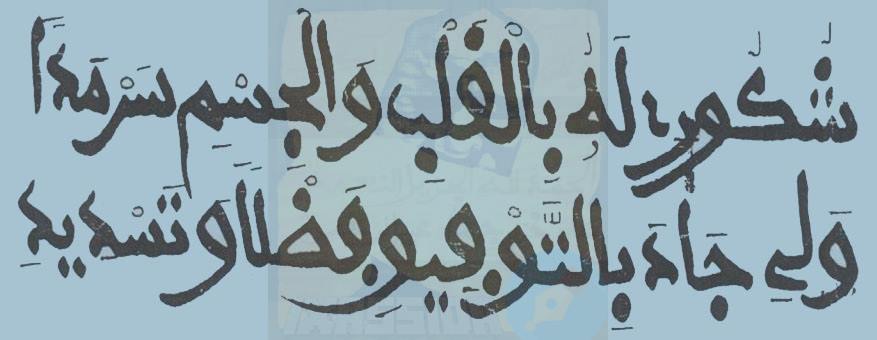 شُكُورِے لَهُ بِالْقَلْبِ وَالْجِسْمِ سَرْمَدًا
وَلِي جَادَ بِالتَّوْفِيقِ فَضْلًا وَتَسْدِيدِ